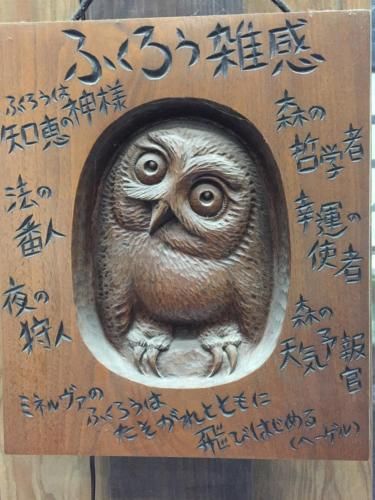 ふくろう雑感
ふくろうは
知恵の神様
法の
番人
夜の
狩人
森の
哲学者
幸運の
使者
森の
天気予報官
ミネルヴァの
ふくろうは
たそがれとともに
飛びはじめる
(ヘーゲル)